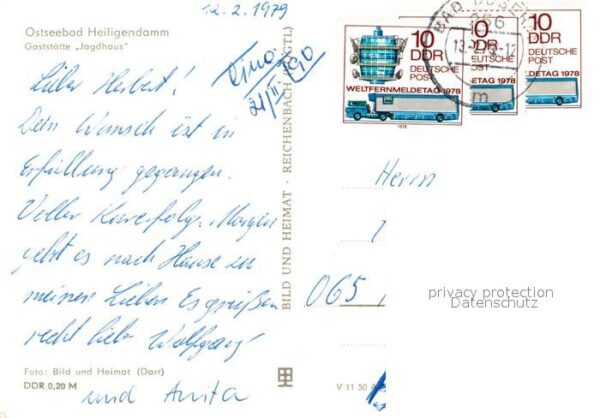 12.2.1979
Ostseebad Heiligendamm
Gaststätte „Jagdhaus"
Lieber Herbert!
Dein Wunsch ist in
Erfüllung gegangen.
Voller Kurerfolg. Morgen
geht es nach Hause zu
meinen Lieben. Es grüßen
recht lieb Wolfgang
und Anita
Foto: Bild und Heimat (Darr)
DDR 0,20 M
21/II
BILD UND HEIMAT · REICHENBACH (VOGTL)
V 11 50
10
DDR
DEUTSCHE
POST
WELTFERNMELDETAG 1978
1978
10
DDR
DEUTSCHE
POST
DETAG 1978
10
DDR
DEUTSCHE
POST
DETAG 1978
BAD
m
Herrn
065
privacy protection
Datenschutz